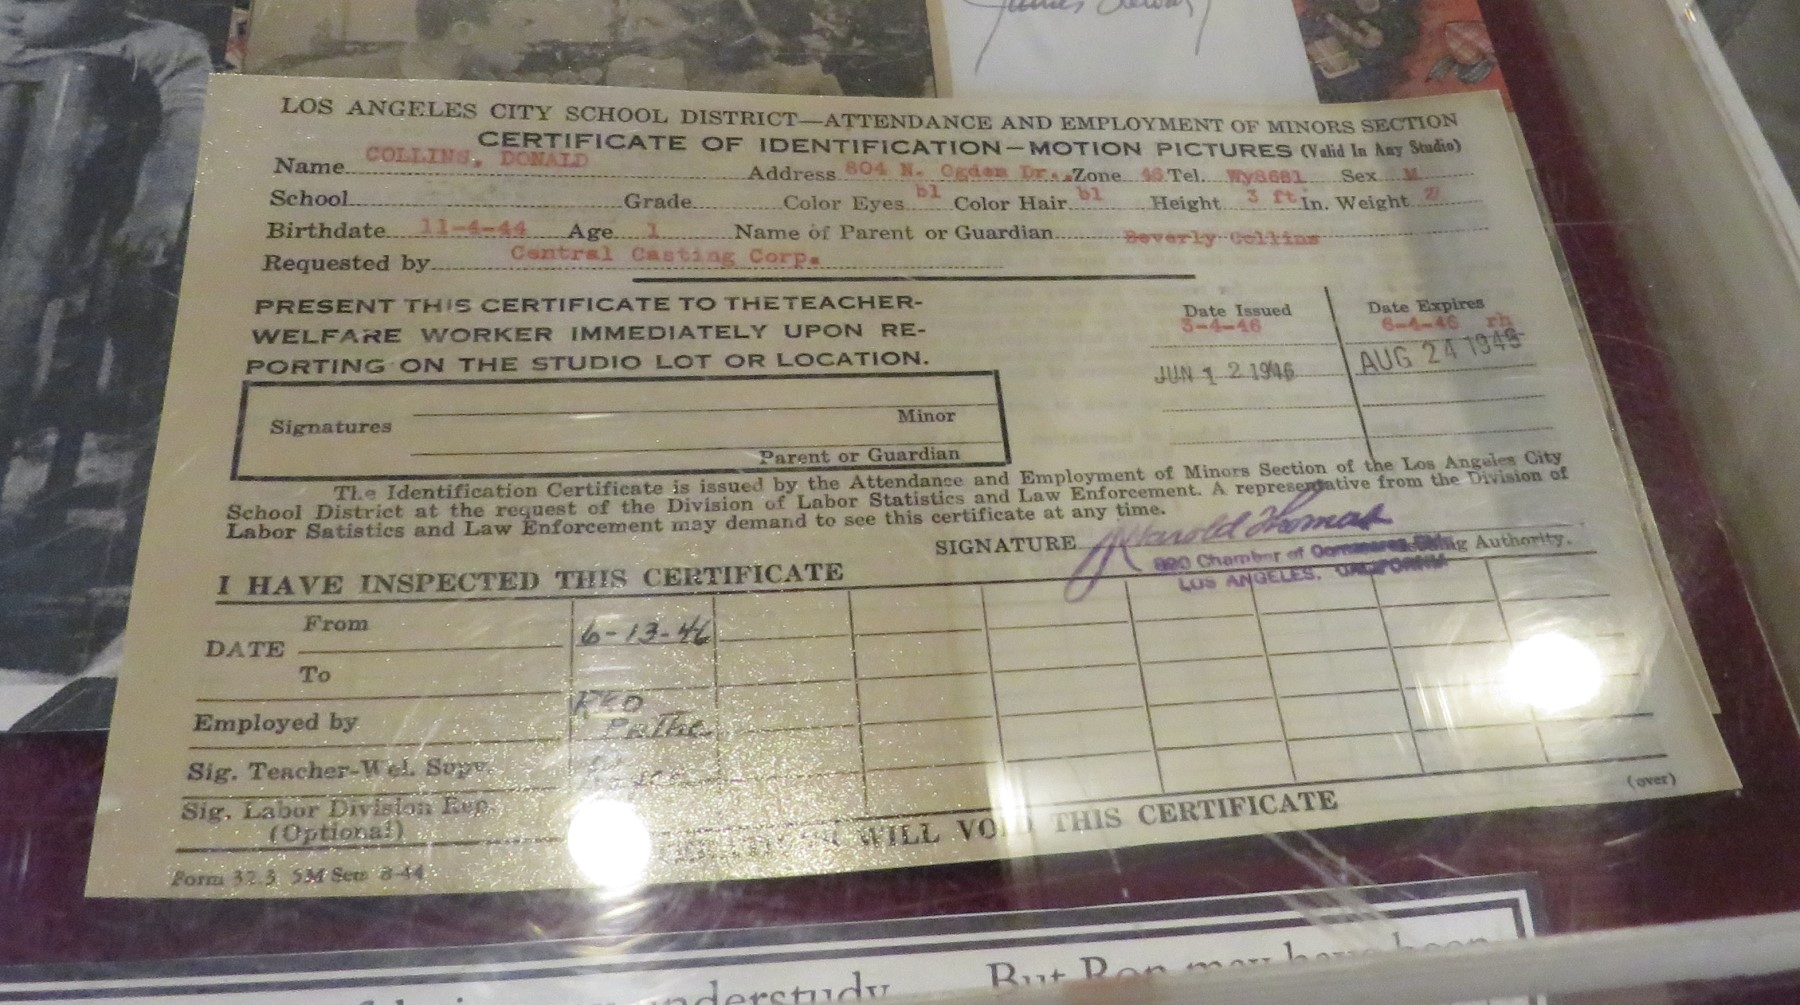 James Stewart
LOS ANGELES CITY SCHOOL DISTRICT—ATTENDANCE AND EMPLOYMENT OF MINORS SECTION
CERTIFICATE OF IDENTIFICATION—MOTION PICTURES (Valid In Any Studio)
Name COLLINS, DONALD Address 804 N. Ogden Dr., Zone 46 Tel. Wy8681 Sex M
School Grade Color Eyes bl Color Hair bl Height 3 ft In. Weight
Birthdate 11-4-44 Age 1 Name of Parent or Guardian Beverly Collins
Requested by Central Casting Corp.
PRESENT THIS CERTIFICATE TO THE TEACHER-
WELFARE WORKER IMMEDIATELY UPON RE-
PORTING ON THE STUDIO LOT OR LOCATION.
Date Issued Date Expires
3-4-46 6-4-46 rh
JUN 12 1946 AUG 24 1946
Signatures Minor
Parent or Guardian
The Identification Certificate is issued by the Attendance and Employment of Minors Section of the Los Angeles City
School District at the request of the Division of Labor Statistics and Law Enforcement. A representative from the Division of
Labor Satistics and Law Enforcement may demand to see this certificate at any time.
SIGNATURE Harold Thomas
Issuing Authority.
820 Chamber of Commerce
LOS ANGELES, CALIFORNIA
I HAVE INSPECTED THIS CERTIFICATE
DATE From 6-13-46
To
Employed by RKO Pathe
Sig. Teacher-Wel. Supv.
Sig. Labor Division Rep.
(Optional)
(over)
WILL VOID THIS CERTIFICATE
Form 32.3 5M Sets 8-44
understudy But Ron may have been